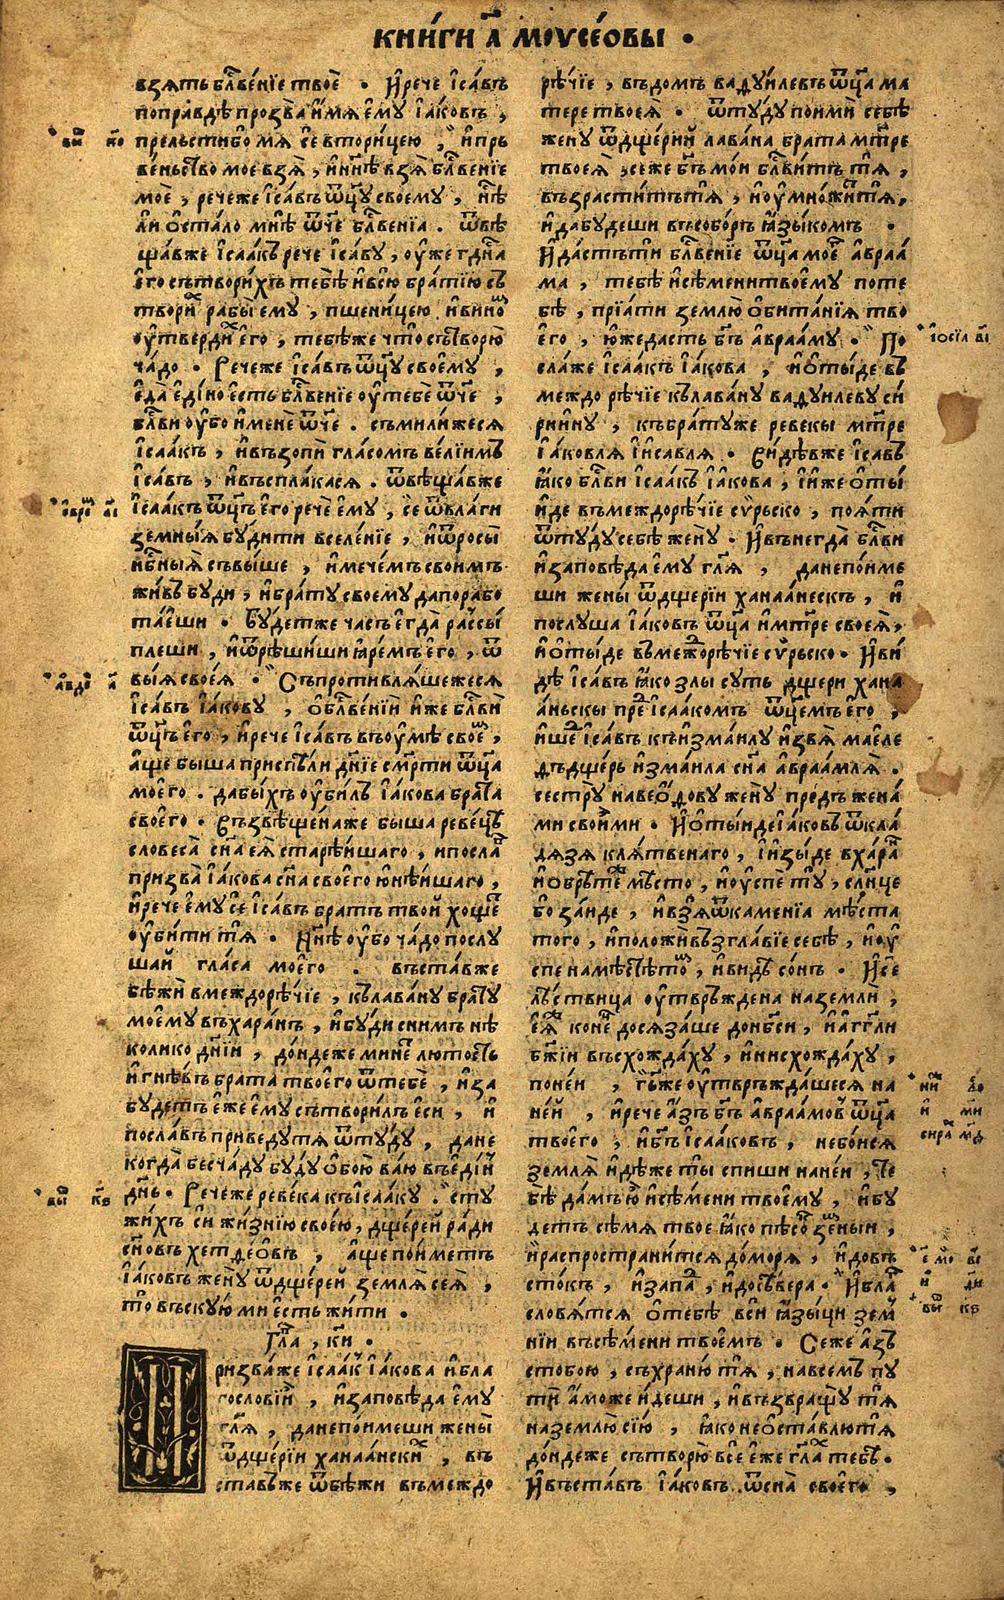 книги а҃ моѵсеовы •
взять бл҃веніе твое • Ирече ісавъ
поправдѣ прозва имя ему іаковъ ,
прельсти бо мя се вторицею , ипръ
веньство мое взя , ин҃нѣ взя бл҃веніе
мое , рече же ісавъ ѿц҃у своему , нѣ
ли остало мнѣ ѿч҃е бл҃венїа . ѿвѣ
щавже ісаакъ рече ісаву , уже г҃дна
его сътворихъ тебѣ ивсю братїю съ
творих рабы ему , пшеницею ивином
утвердих его , тебѣже что сътворю
чадо • Речеже ісавъ ѿц҃у своему ,
еда едіно есть бл҃веніе утебе ѿч҃е ,
бл҃ви убо имене ѿч҃е . съмилижеся
ісаакъ , ивъзопи гласомъ велїимъ
ісавъ , ивъсплакася . ѿвѣщавже
ісаакъ ѿц҃ъ его рече ему , се ѿвлаги
земныя будити вселенїе , иѿросы
нб҃ныя съвыше , имечемъ своимъ
живъ буди , ибрату своему дапорабо
таеши • Будетже часъ егда рассы
плеши , иѿрѣшиши яремъ его , ѿ
выя своея • Съпротивляшежеся
ісавъ іакову , обл҃венїи иже бл҃ви
ѿц҃ъ его , ирече ісавъ въумѣ своем ,
аще быша приспѣли днїе смр҃ти ѿц҃а
моего . дабыхъ убилъ іакова брата
своего • Възвѣщенаже быша ревецѣ
словеса сн҃а ея старѣишаго , ипослав
призва іакова сн҃а своего юнѣишаго ,
ирече ему се ісавъ братъ твой хощет
убити тя • Нн҃ѣ убо чадо послу
шай гласа моего . въставже
бѣжи вмеждорѣчїе , кълавану брату
моему въхарань , ибуди снимъ нѣ
колико днїи , дондеже минет лютость
игнѣвъ брата твоего ѿтебе , иза
будетъ еже ему сътворилъ еси , и
пославъ приведутя ѿтуду , дане
когда бесчаду буду обою ваю въедин
день • Речеже ревека къісааку . сту
жихъ си жизнїю своею, дщерей ради
сн҃овъ хетдеовъ , аще пойметъ
іаковъ жену ѿдщерей земля сея ,
то въскую ми есть жити •
Гл҃а , к҃и •
Призваже ісаакъ іакова ибла
гословий , изаповѣда ему
гл҃я , данепоимеши жены
ѿдщерїи ханаански , въ
ставъже ѿбѣжи въмеждо
рѣчїе , въдомъ вафуилевъ ѿц҃а ма
тере твоея • ѿтуду поими себѣ
жену ѿдщерий лавана брата мт҃ре
твоея , сеже бг҃ъ мои бл҃витъ тя ,
възраститътя , иумножитътя,
идабудеши въсоборъ языкомъ •
Идастъти бл҃веніе ѿц҃а моег авраа
ма , тебѣ исѣменитвоему поте
бѣ , прїати землю обитанїя тво
его , юждасть бг҃ъ аврааму • По
слаже ісаакъ іакова , иотыде въ
междо рѣчїе кълавану вафуилеву си
рийну , къбратуже ревекы мт҃ре
іаковля іисавля • Видѣвже ісавъ
яко бл҃ви ісаакъ іакова , ииже оты
иде въмеждорѣчїе сурьско , пояти
ѿтуду себѣ жену • Ивънегда бл҃ви
изаповѣда ему гл҃я , данепоиме
ши жены ѿдщерїи ханаанескъ , и
послуша іаковъ ѿц҃а имт҃ре своея ,
иотыде въмеждорѣчїе сурьско • Иви
дѣ ісавъ яко злы суть дщери хана
аньскы пред ісаакомъ ѿц҃емъ его ,
ишед ісавъ къизмаилу извя маеле
дъдщерь измаила сн҃а авраамля .
сестру навеофову жену предъ жена
ми своими • Иотыиде іаковъ ѿкла
дязя клятвенаго , іизыде вхаран
иобрѣте мѣсто , иуспе ту , сл҃нце
бо заиде , ивзя ѿкаменїа мѣста
того , иположи въ зглавїе себѣ , иу
спе намѣстѣтом , ивидѣ сонъ • Исе
лѣствица утвръждена наземли ,
еяже конец досязаше донб҃си , иаггели
б҃жїи въсхождаху , инисхождаху ,
понеи , г҃ьже утвръждашеся на
ней , ирече азъ бг҃ъ авраамовъ ѿц҃а
твоего , иб҃гъ ісааковъ , небоися
земля идѣже ты спиши наней , те
бѣ дамъ ю исѣмени твоему , ибу
детъ сѣмя твое яко пѣсок земныи ,
ираспространится доморя , идовъ
стокъ , изапад , идосѣвера • Ибла
словятся отебѣ вси языци зем
нїи въсѣмени твоемъ • Сеже азъ
стобою , съхраню тя , навсемъ пу
ти аможе идеши , ивъзвращу тя
наземлю сїю , яко неоставлютя
дондеже сътворю все еже гл҃ах тебѣ •
Ивъставъ іаковъ ѿсна своего ,